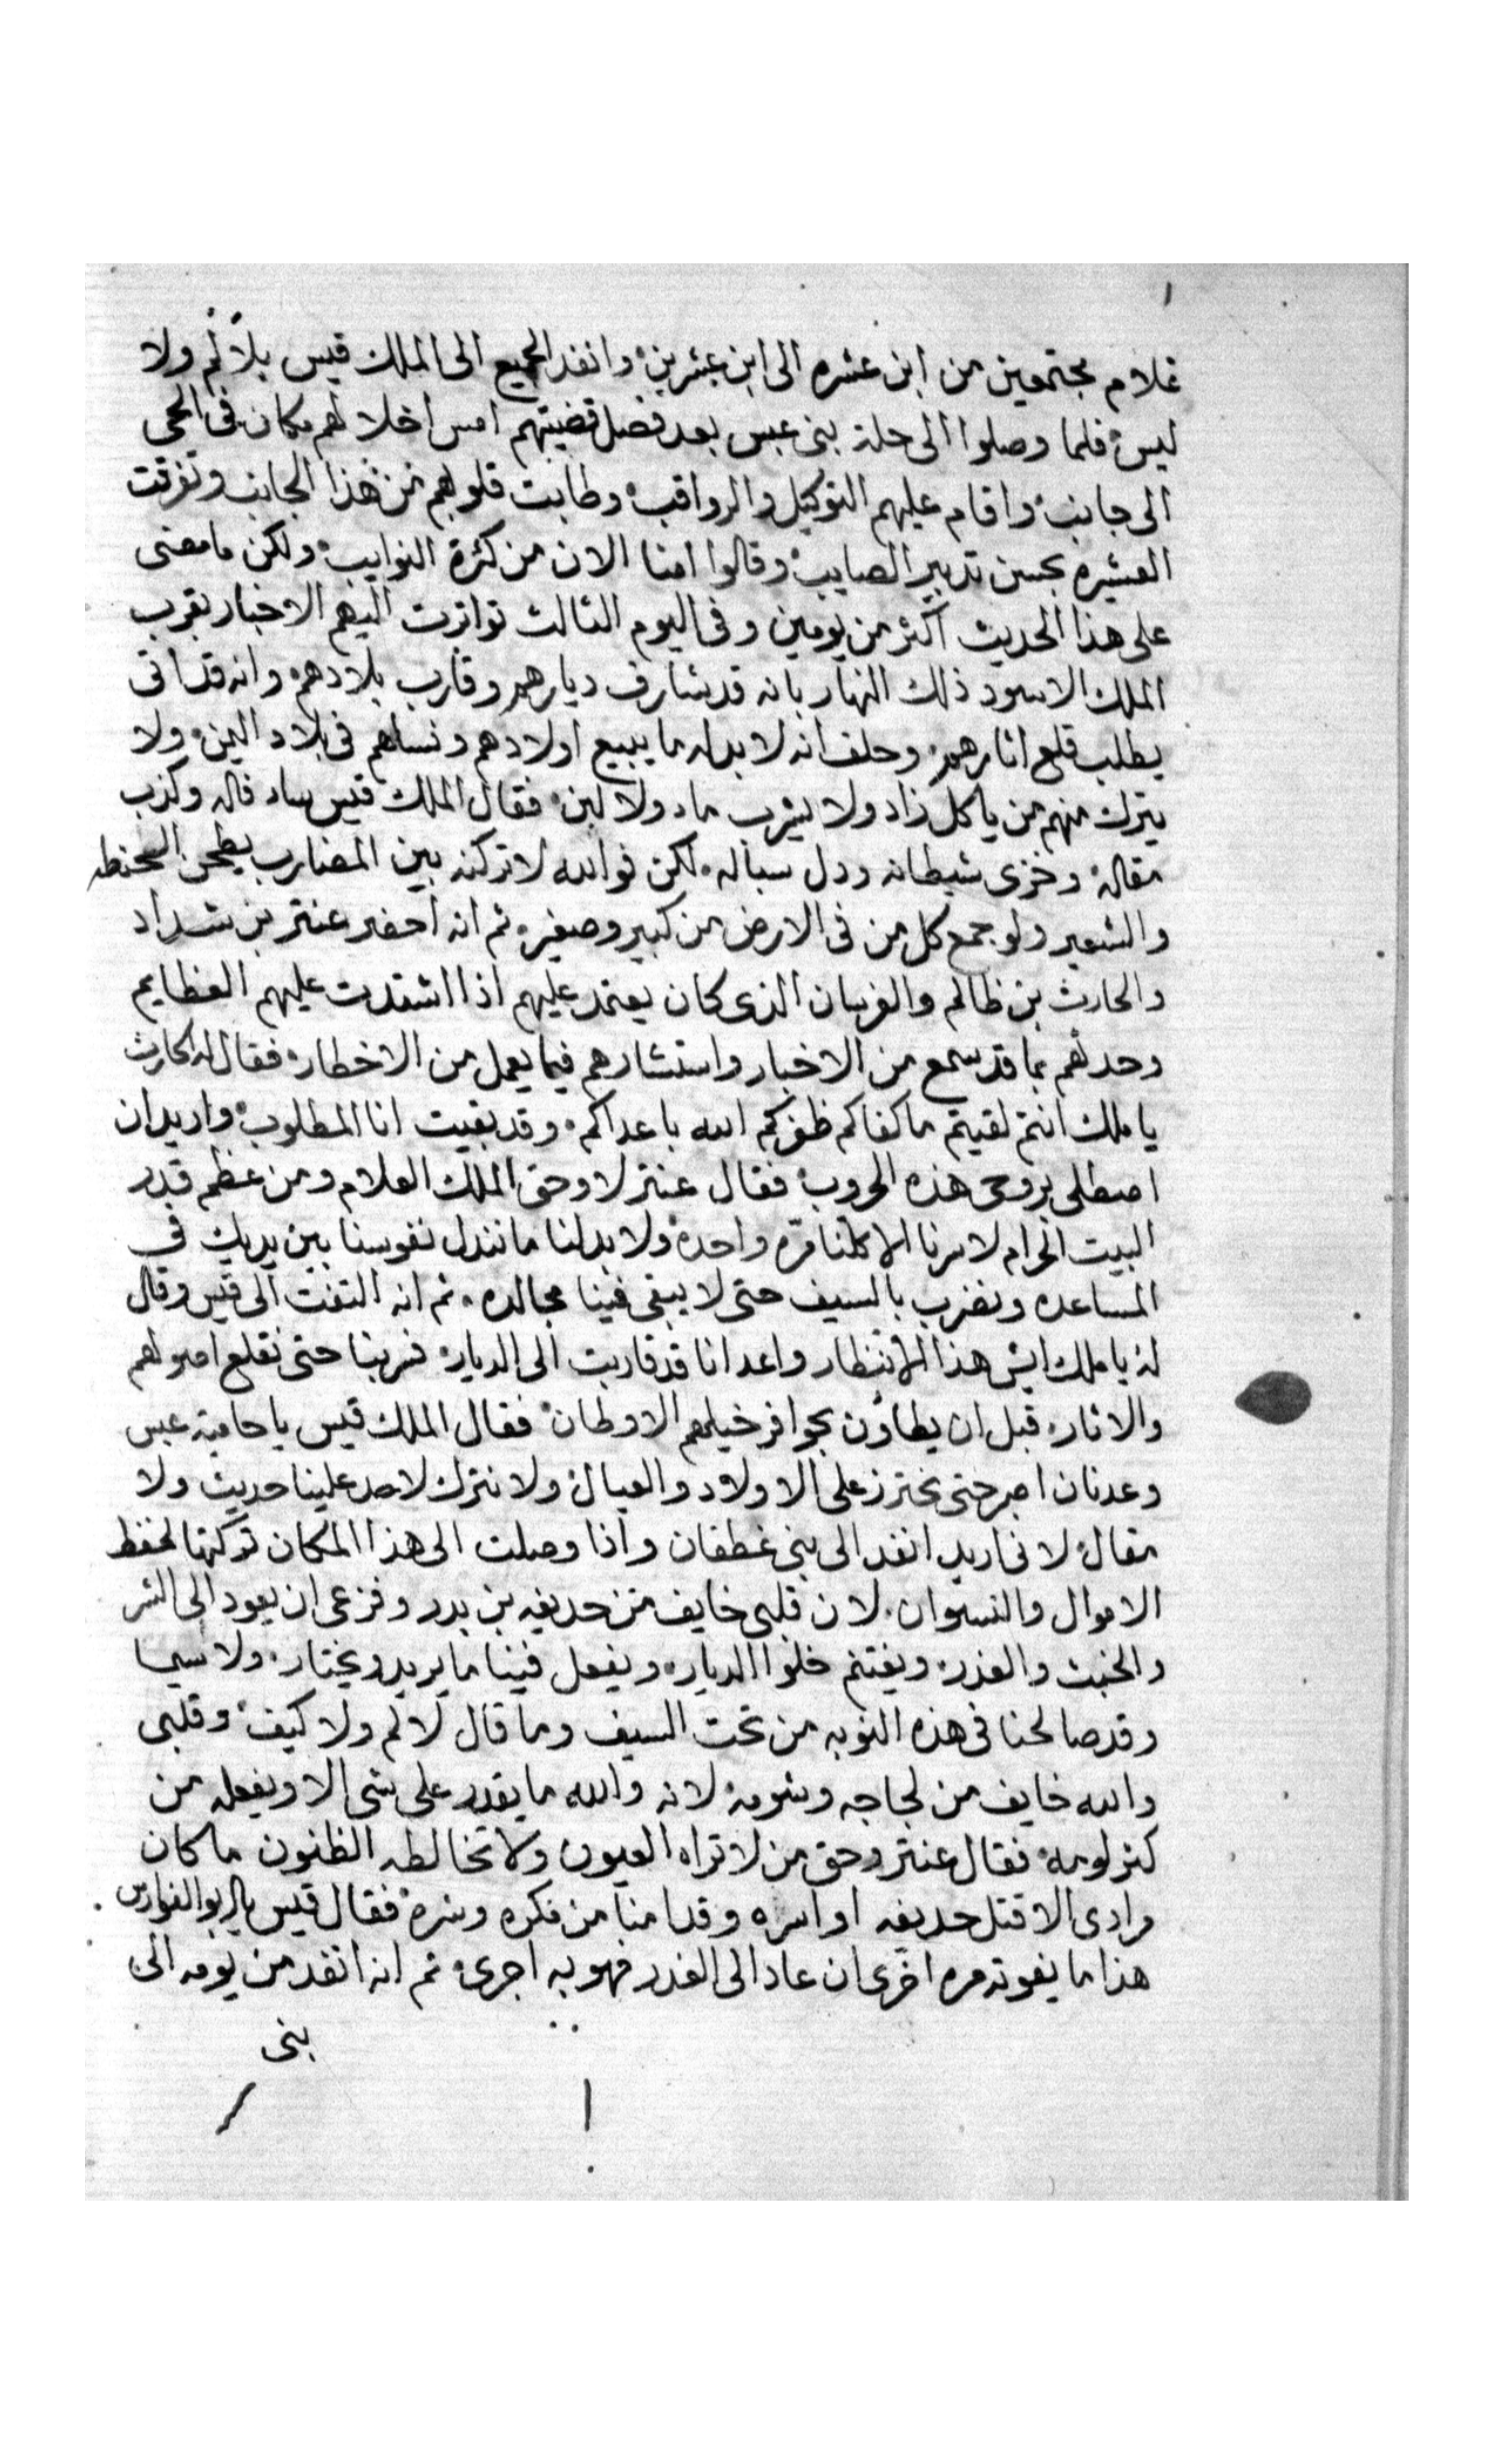 غلام مجتمعين من ابن عشره الى ابن عشرين وانفد الجميع الى الملك قيس بلا لم ولا
ليس فلما وصلوا الى حلة بنى عبس بعد فصل قضيتهم امس اخلا لهم مكان فى الحى
الى جانب واقام عليهم التوكيل والرواقب وطابت قلوبهم من هذا الجانب وتفرقت
العشيره بحسن تدبير الصايب وقالوا امنا الان من كثرة النوايب ولكن ما مضى
على هذا الحديث اكثر من يومين وفى اليوم الثالث تواترت اليهم الاخبار بقرب
الملك الاسود ذلك النهار بانه قد شارف ديارهم وقارب بلادهم وانه قد اتى
يطلب قلع اثارهم وحلف انه لا بد له ما يبيع اولادهم ونساهم فى بلاد اليمن ولا
يترك منهم من ياكل زاد ولا يشرب ماء ولا لبن فقال الملك قيس ساء فاله وكذب
مقاله وخزى شيطانه ودل سباله لكن فوالله لا تركنه بين المضارب يطحن الحنطه
والشعير ولو جمع كل من فى الارض من كبير وصغير ثم انه احضر عنتر بن شداد
والحارث بن ظالم والفرسان الذى كان يعتمد عليهم اذا اشتدت عليهم العظايم
وحدثهم بما قد سمع من الاخبار واستشارهم فيما يعمل من الاخطار فقال له الحارث
يا ملك انتم لقيتم ما كفاكم ظفركم الله باعداكم وقد بقيت انا المطلوب واريد ان
اصطلى بروحى هذه الحروب فقال عنتر لا وحق الملك العلام ومن عظم قدر
البيت الحرام لا سرنا الا كلنا مرة واحدة ولا بد لنا ما نندل نفوسنا بين يديك فى
المساعده ونضرب بالسيف حتى لا يبقى فينا مجالده ثم انه التفت الى قيس وقال
له يا ملك ايش هذا الانتظار واعدانا قد قاربت الى الديار فسر بنا حتى نقلع اصولهم
والاثار قبل ان يطاون بحوافر خيلهم الاوطان فقال الملك قيس يا حامية عبس
وعدنان اصبر حتى نحترز على الاولاد والعيال ولا نترك لاحد علينا حديث ولا
مقال لانى اريد انفد الى بنى غطفان واذا وصلت الى هذا المكان تركتها لحفظ
الاموال والنسوان لان قلبى خايف من حديفه بن بدر وفزعى ان يعود الى الشر
والخبث والغدر ويغتنم خلوا الديار ويفعل فينا ما يريد ويختار ولا سيما
وقد صالحنا فى هذه النوبه من تحت السيف وما قال لا لم ولا كيف وقلبى
والله خايف من لجاجه وشومه لانه والله ما يقدر على شى الا ويفعله من
كثر لومه فقال عنتر وحق من لا تراه العيون ولا تخالطه الظنون ما كان
مرادى الا قتل حديفه او اسره وقد امنا من فكره وشره فقال قيس يا ابو الفوارس
هذا ما يفوته مره اخرى ان عاد الى الغدر فهو به اجرى ثم انه انفد من يومه الى
بنى